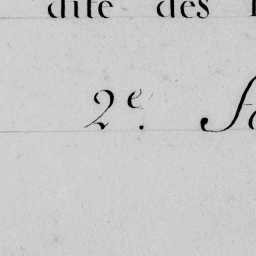 dite des
2e.